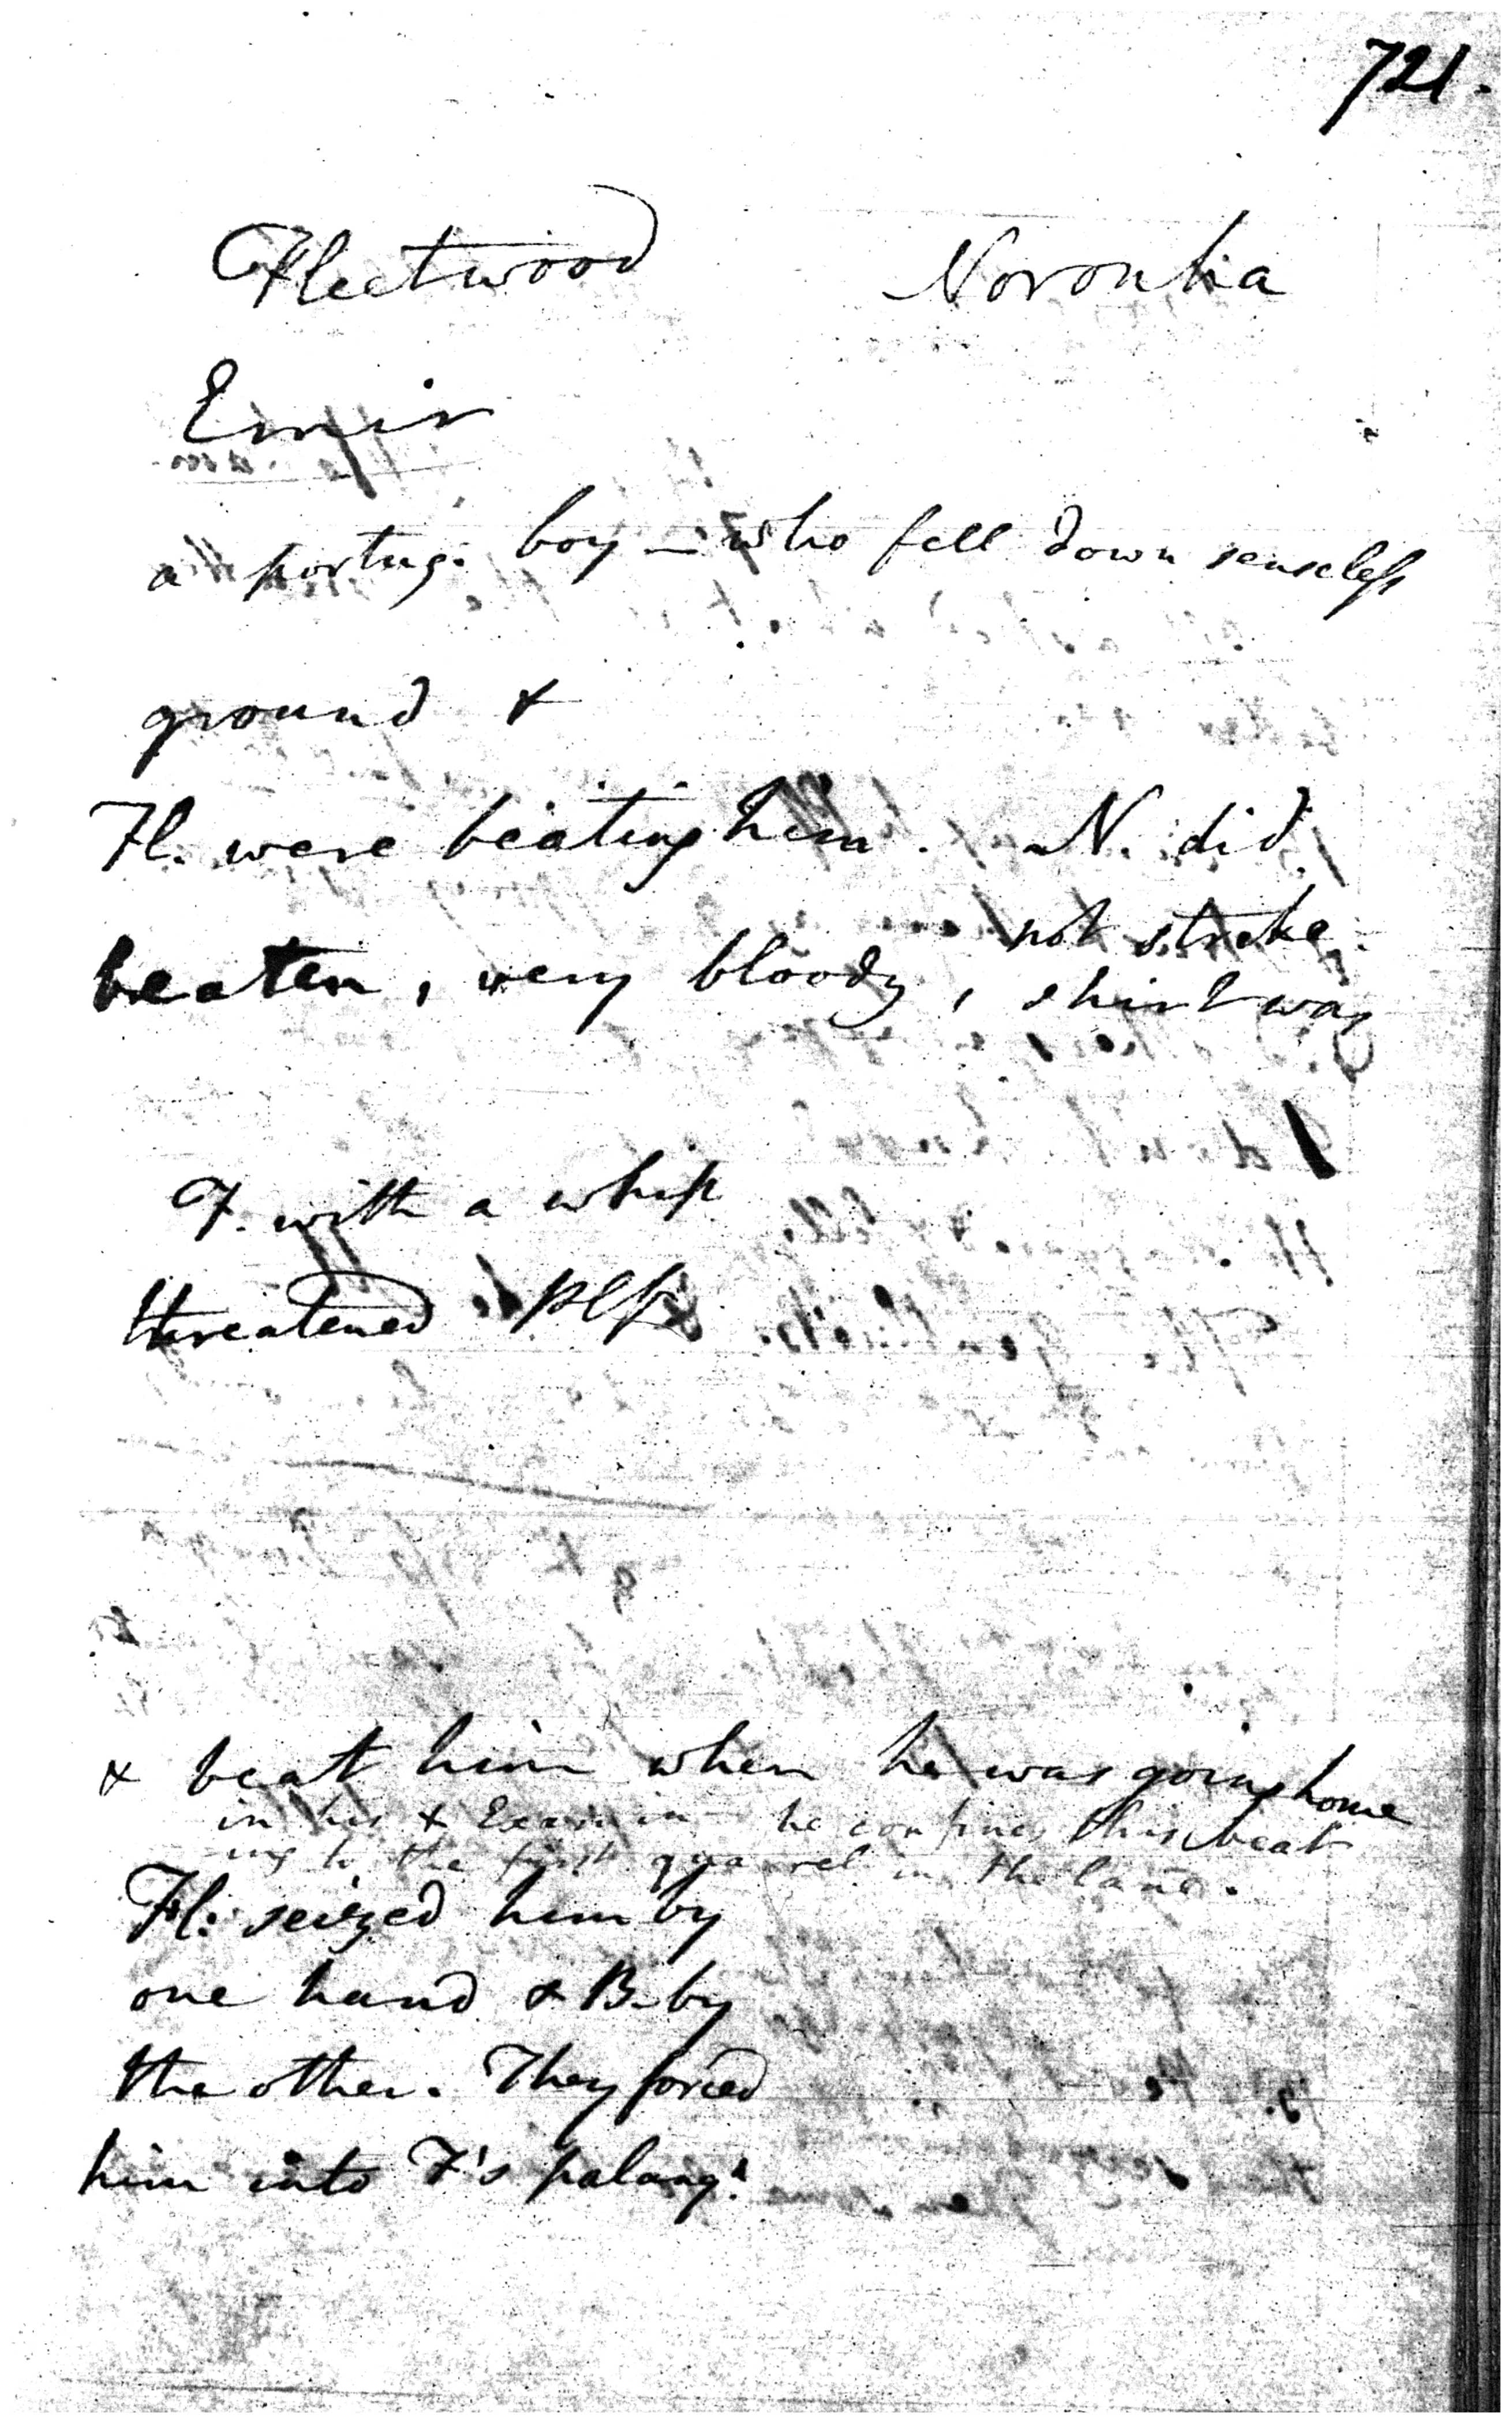 721.
Fleetwood Noronha
Emir
a portug. boy — who fell down senseless
ground &
Fl. were beating him. N. did
not strike.
beaten, very bloody, shirt was
F. with a whip
threatened plff
& beat him when he was going home
in his X Exam in he confines this beat
ing to the first quarrel in the lane.
Fl: seized him by
one hand & B. by
the other. They forced
him into F's palanqn